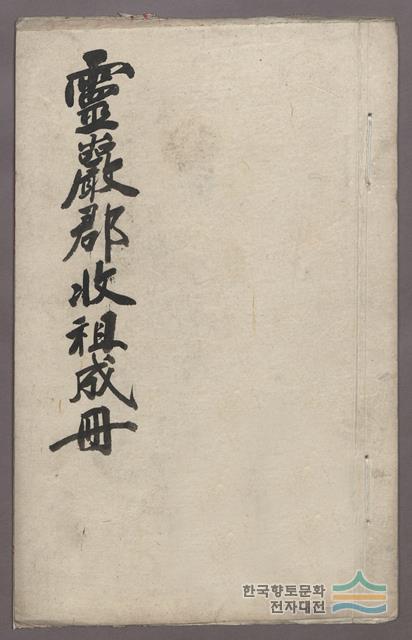 靈巖郡收租成冊
한국향토문화
전자대전